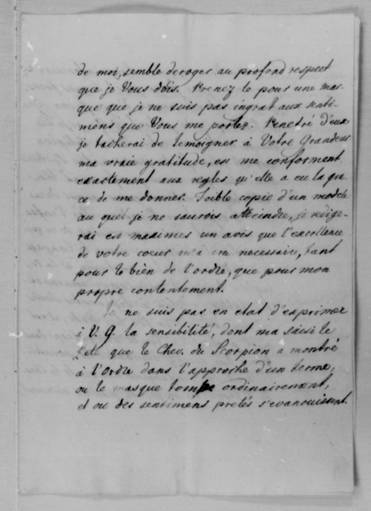 de moi, semble deroger au profond respect
que je Vous dois. Prenez le pour une mar-
que que je ne suis pas ingrat aux senti-
mens que Vous me portez. Penetré d'eux
je tacherai de temoigner à Votre Grandeur
ma vraie gratitude, en me conformant
exactement aux regles qu'elle a eu la gra
ce de me donner. Foible copie d'un modele
au quel je ne saurois atteindre, je
rai en maximes un avis que l'excellence
de votre coeur m'a cru necessaire, tant
pour le bien de l'ordre, que pour mon
propre contentement.
Je ne suis pas en etat d'exprimer
à V. G. la sensibilité, dont m'a saisi le
Zele que le Chev. du Scorpion a montré
à l'Ordre dans l'approche d'un terme,
ou le masque tombe ordinairement,
et ou des sentimens pretés s'evanouissent.